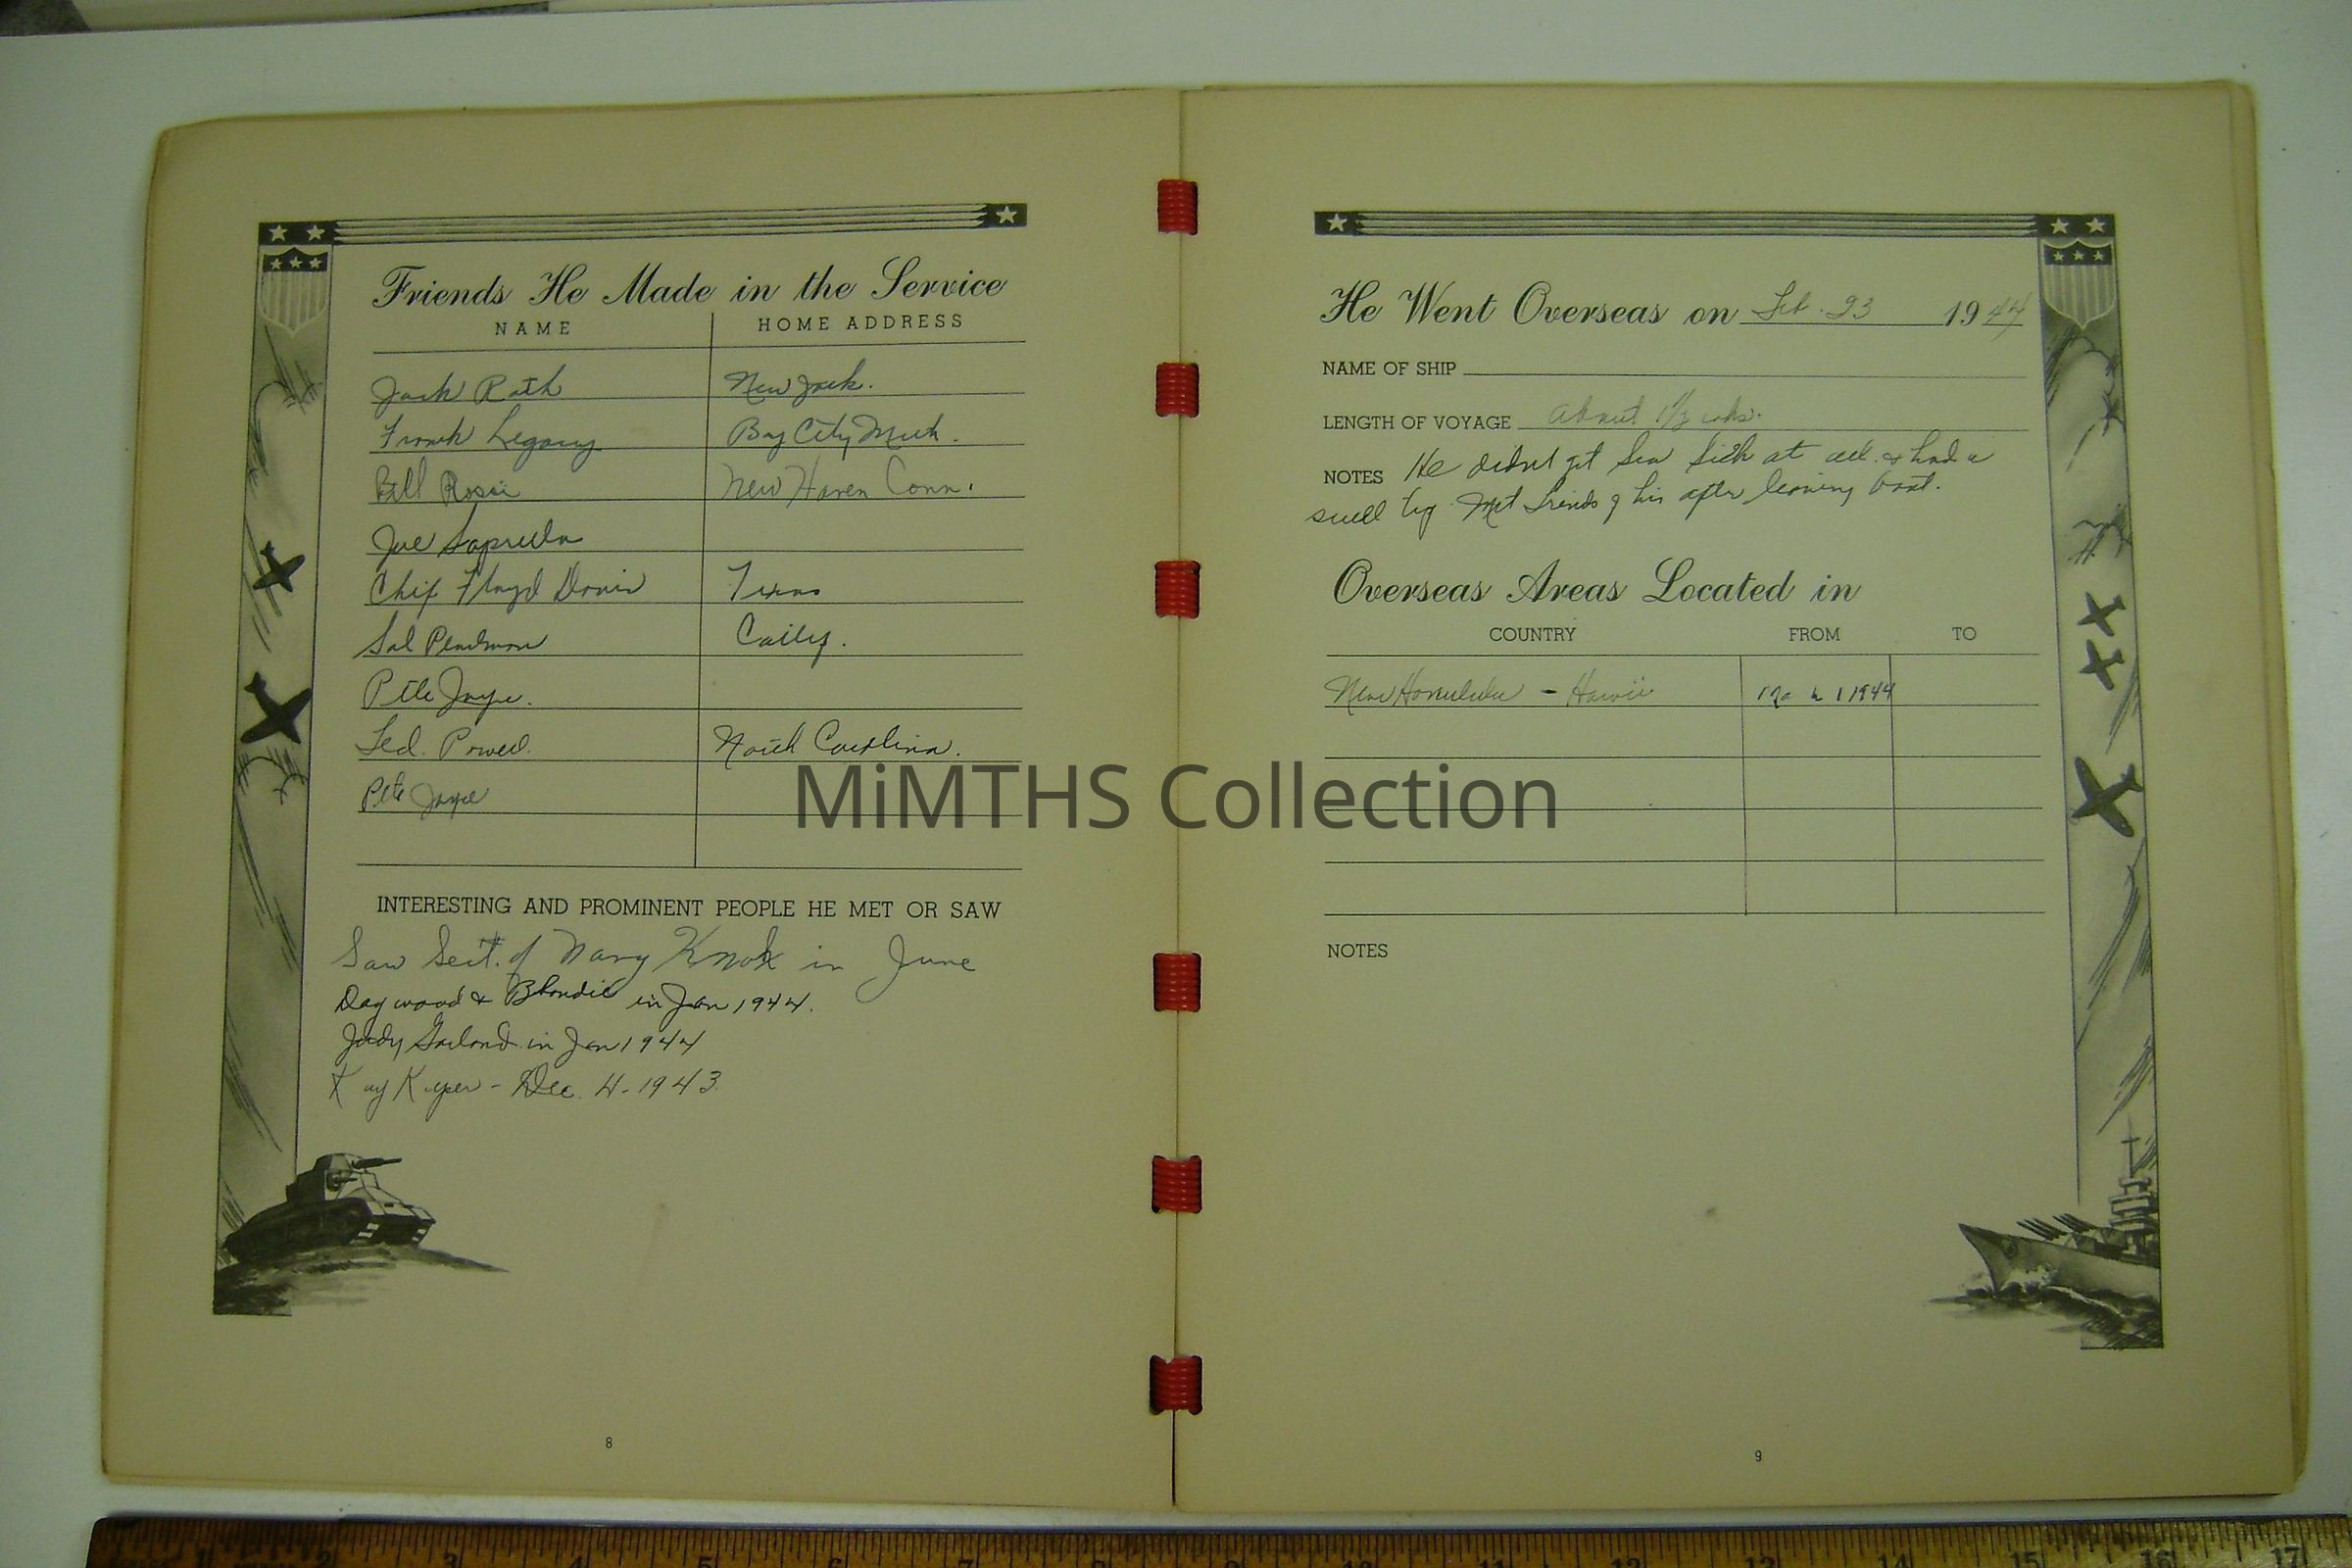 Friends He Made in the Service
NAME HOME ADDRESS
Jack Rath New York.
Frank Legacy Bay City Mich.
Bill Rossi New Haven Conn.
Joe
Chief Floyd Davis Texas
Sal Calif.
Pete Jaye.
Ted. Powell. North Carolina.
Pete Jaye
INTERESTING AND PROMINENT PEOPLE HE MET OR SAW
Saw Sect. of Navy Knox in June
Dagwood & Blondie in Jan 1944.
Judy Garland in Jan 1944
Kay Kyser - Dec. 4. 1943.
8
He Went Overseas on Feb. 23 1944
NAME OF SHIP
LENGTH OF VOYAGE About 1 1/2 wks.
NOTES He didnt get Sea Sick at all. & had a
swell trip. Met friends of his after leaving boat.
Overseas Areas Located in
COUNTRY FROM TO
Near Honululu - Hawii 1 1944
NOTES
9
MiMTHS Collection
1 2 3 4 5 6 7 8 9 10 11 12 13 14 15 16 17